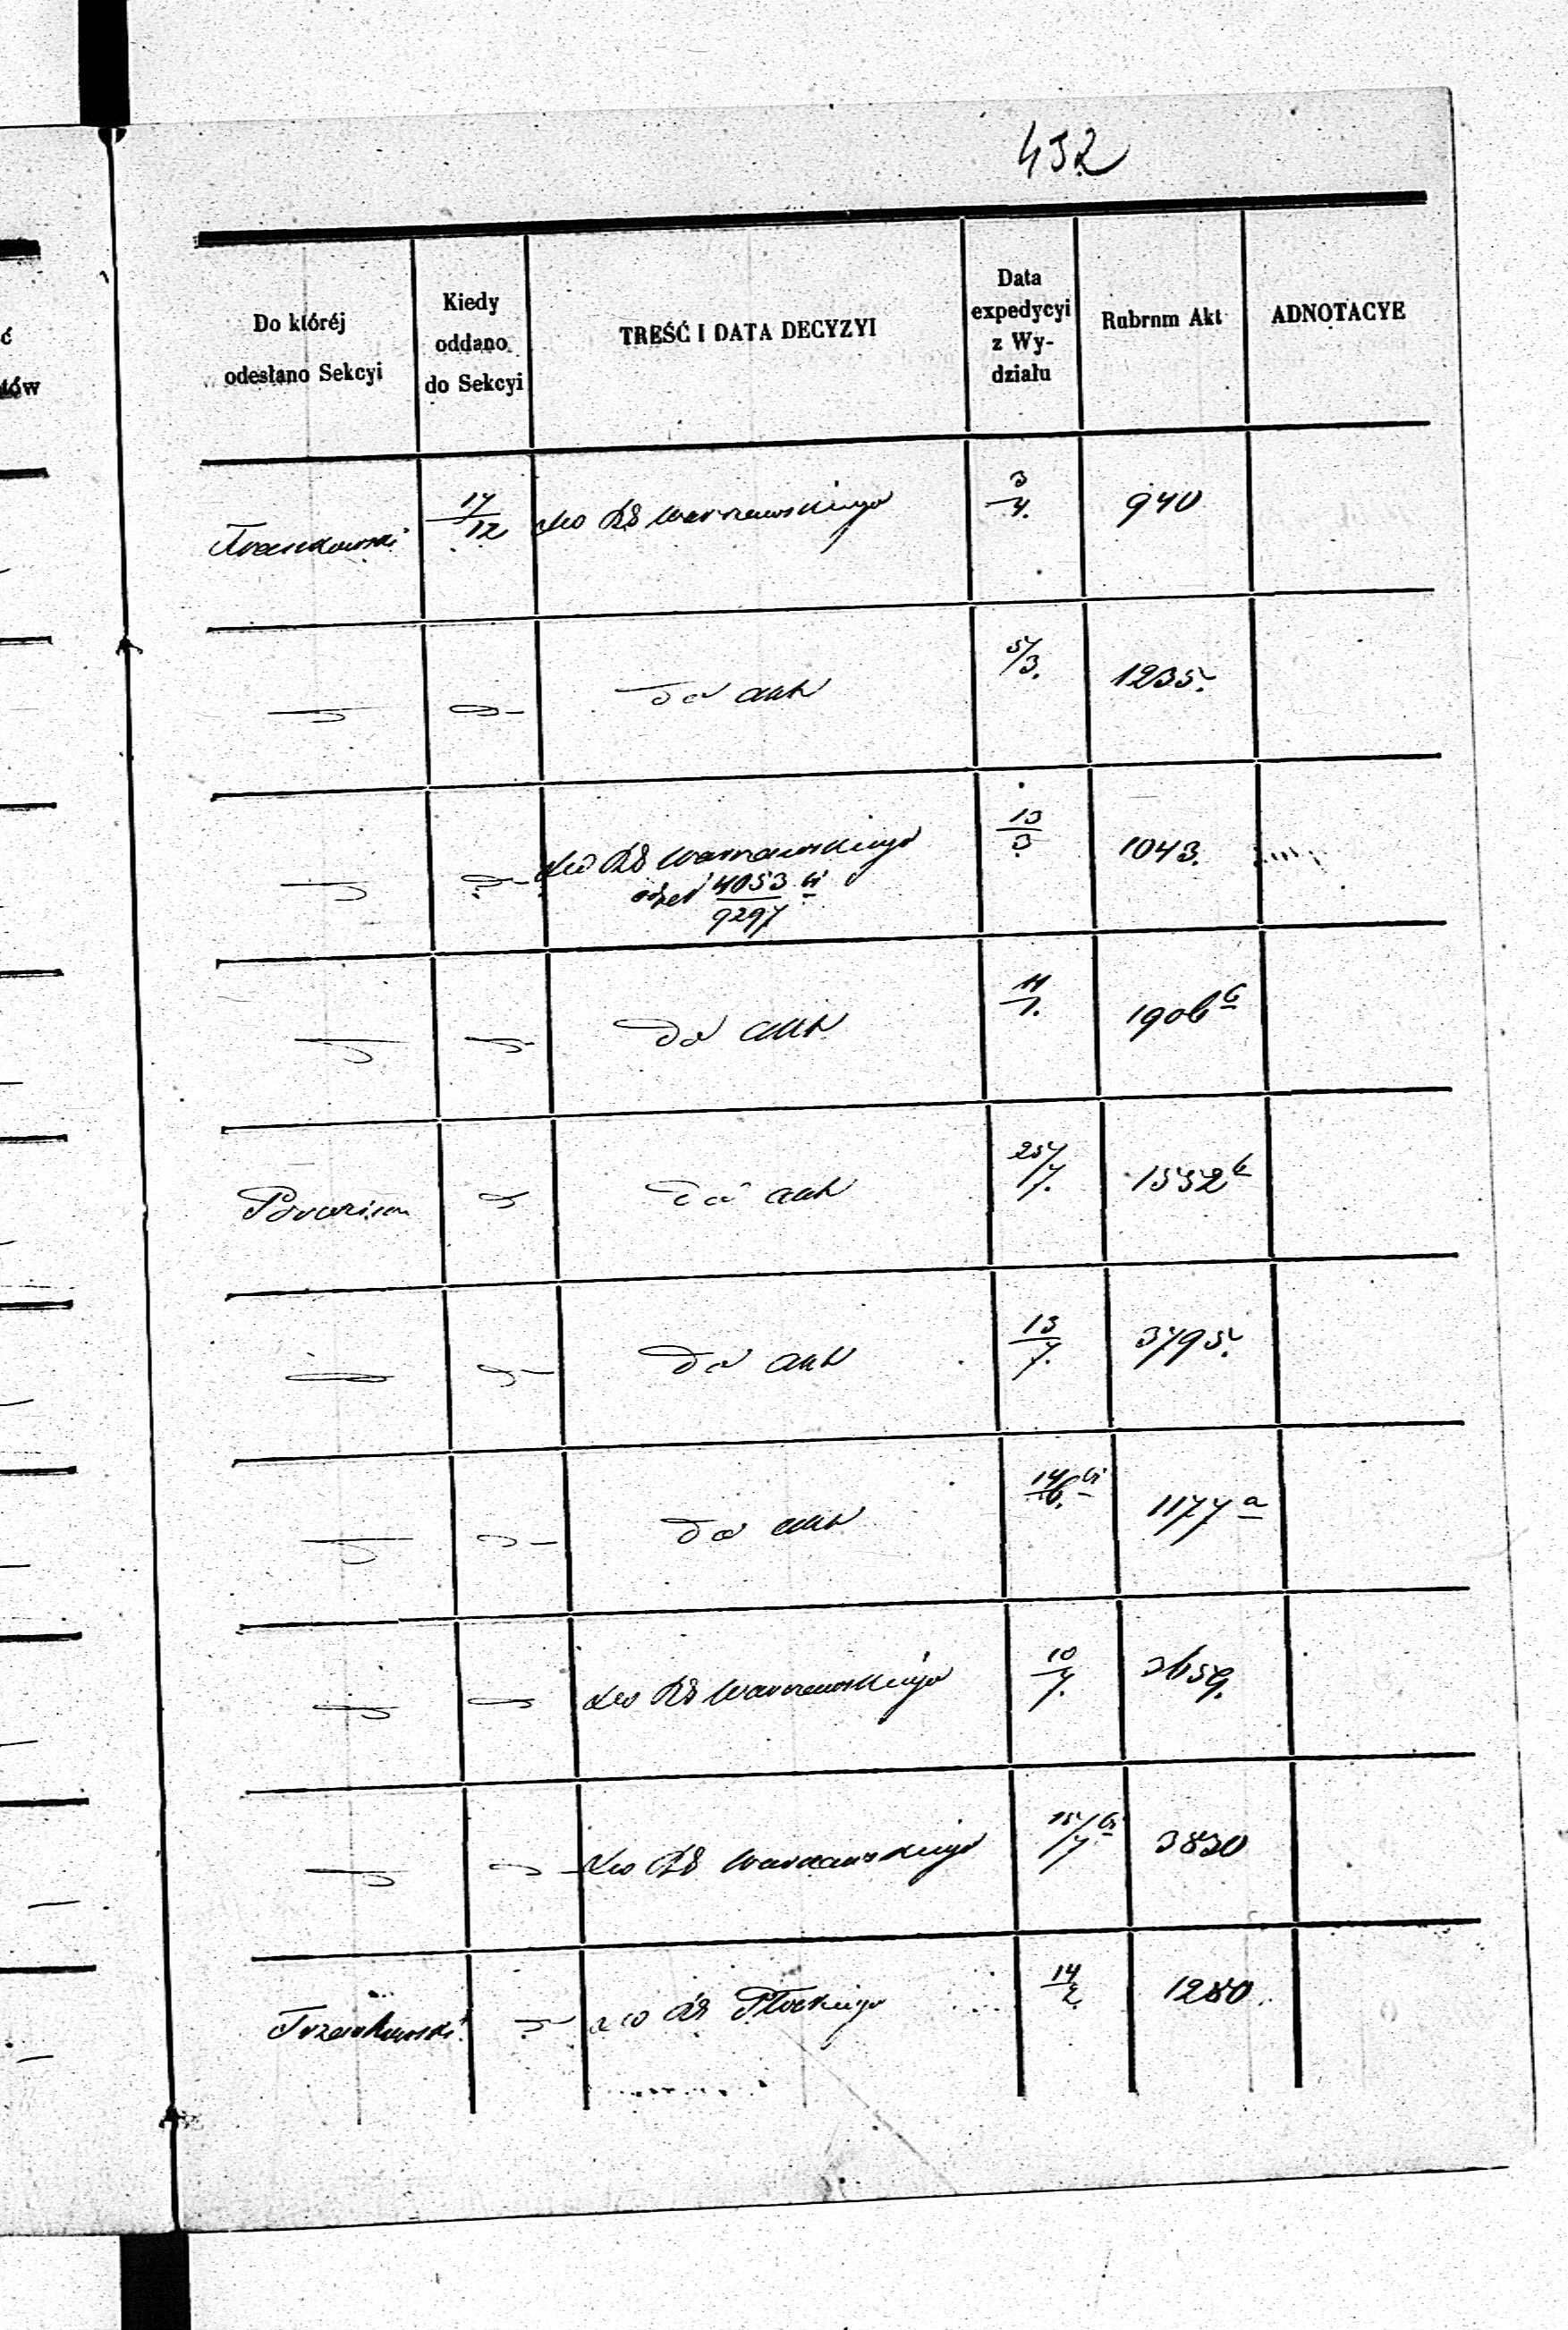 432
ć
tów
Do któréj
odesłano Sekcyi
Kiedy
oddano
do Sekcyi
TREŚĆ I DATA DECYZYI
Data
expedycyi
z Wy-
działu
Rubrum Akt
ADNOTACYE
17/12 do Rz Warszawskiego 3/4. 940
do akt 5/3. 1235.
do Rz Warszawskiego 13/3 1043.
4053/9297
do akt 11/7. 1906
do akt 25/7. 1532
do akt 13/7. 3795.
do akt 14/6. 1177 a
do Rz Warszawskiego 10/7. 3659.
do Rz Warszawskiego 15/7 3830
Trzaskowski do Rz Płockiego 14/2. 1280.